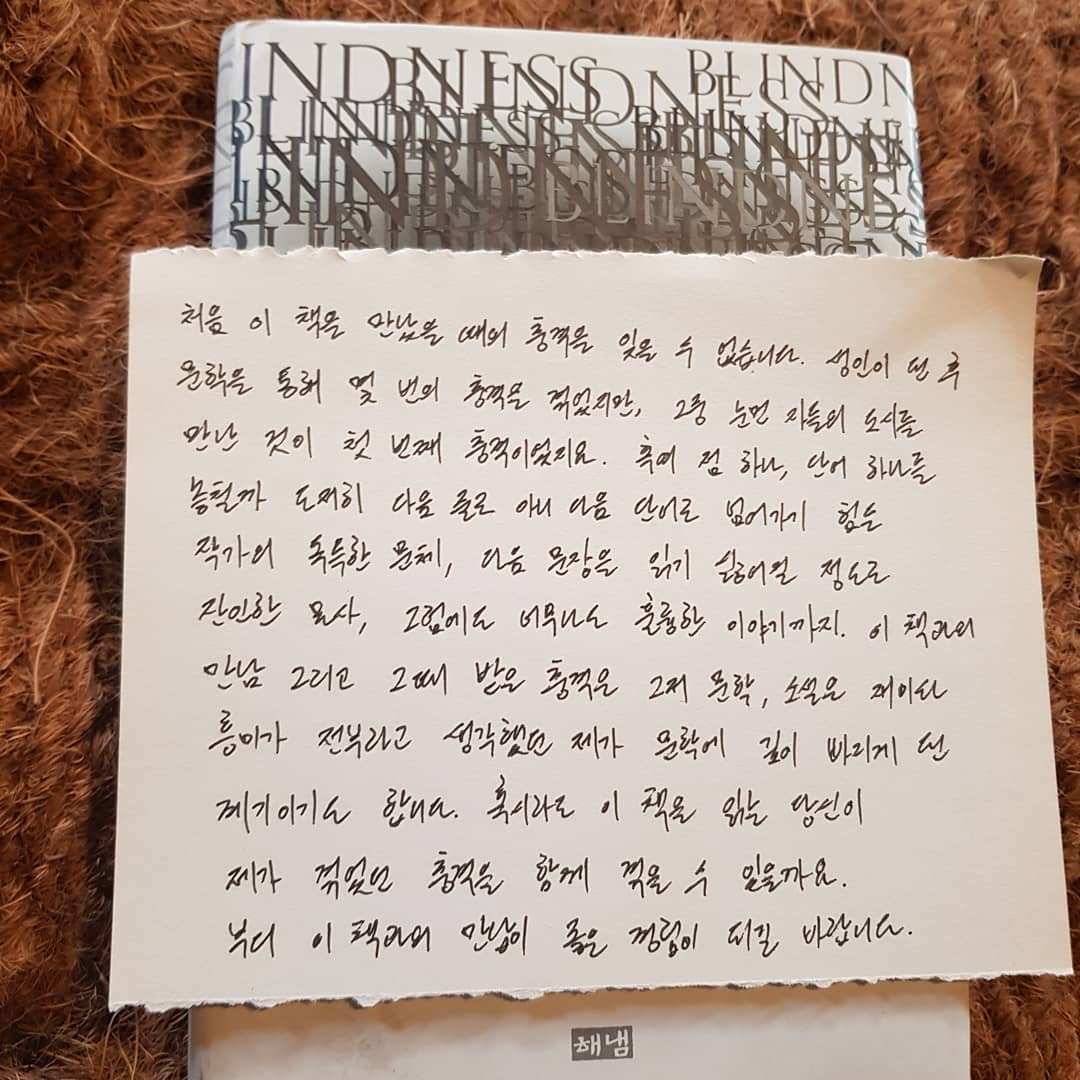 INDNESS BLINDN
처음 이 책을 만났을 때의 충격을 잊을 수 없습니다. 성인이 된 후
문학을 통해 몇 번의 충격을 겪었지만, 그중 눈먼 자들의 도시를
만난 것이 첫 번째 충격이었지요. 혹여 점 하나, 단어 하나를
놓칠까 도저히 다음 줄로 아니 다음 단어로 넘어가기 힘든
작가의 독특한 문체, 다음 문장을 읽기 싫어질 정도로
잔인한 묘사, 그럼에도 너무나도 훌륭한 이야기까지. 이 책과의
만남 그리고 그때 받은 충격은 그저 문학, 소설은 재미와
흥미가 전부라고 생각했던 제가 문학에 깊이 빠지게 된
계기이기도 합니다. 혹시라도 이 책을 읽는 당신이
제가 겪었던 충격을 함께 겪을 수 있을까요.
부디 이 책과의 만남이 좋은 경험이 되길 바랍니다.
해냄